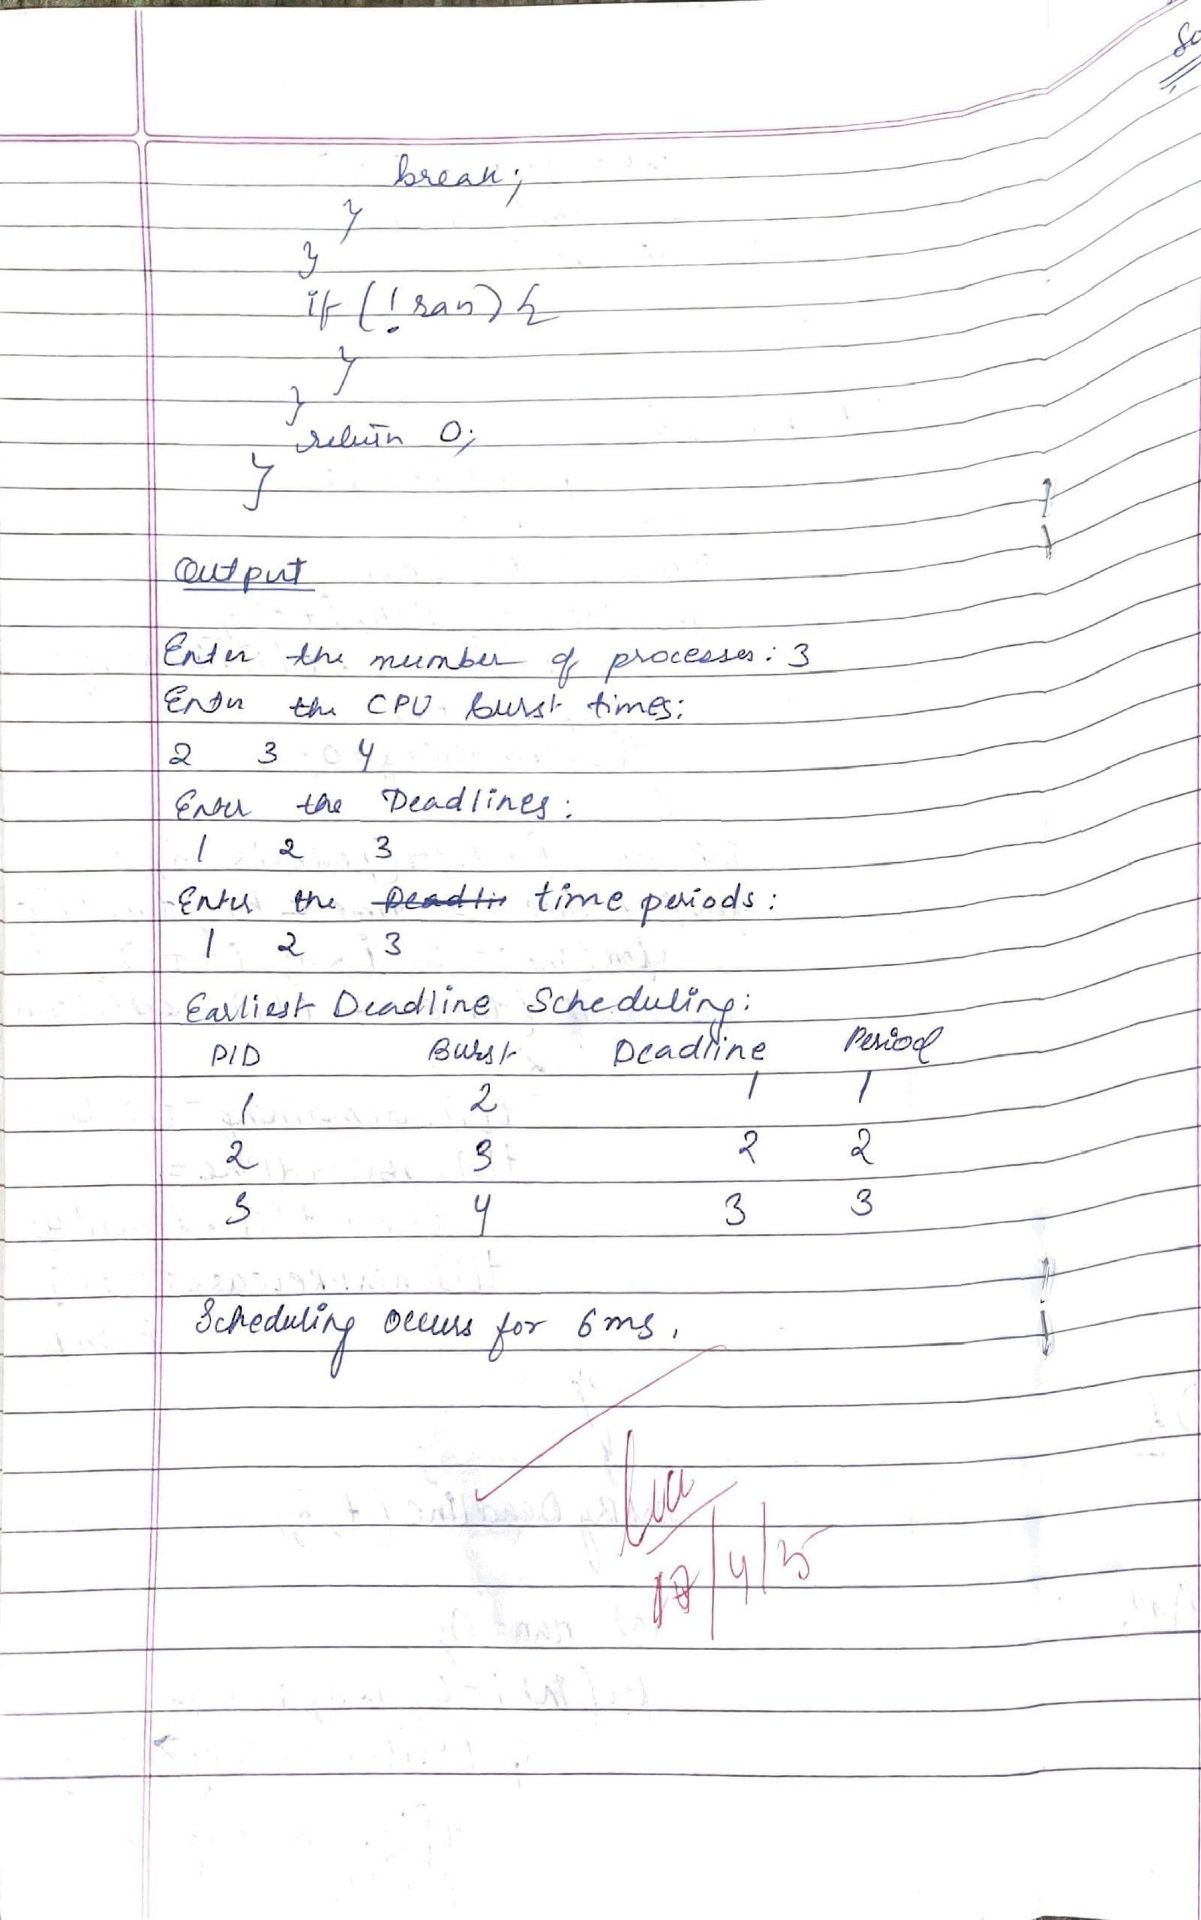 So
break;
}
}
if (!ran) {
}
}
return 0;
}
Output
Enter the number of processes: 3
Enter the CPU burst times:
2 3 4
Enter the Deadlines:
1 2 3
Enter the time periods:
1 2 3
Earliest Deadline Scheduling:
PID Burst Deadline Period
1 2 1 1
2 3 2 2
3 4 3 3
Scheduling occurs for 6ms.